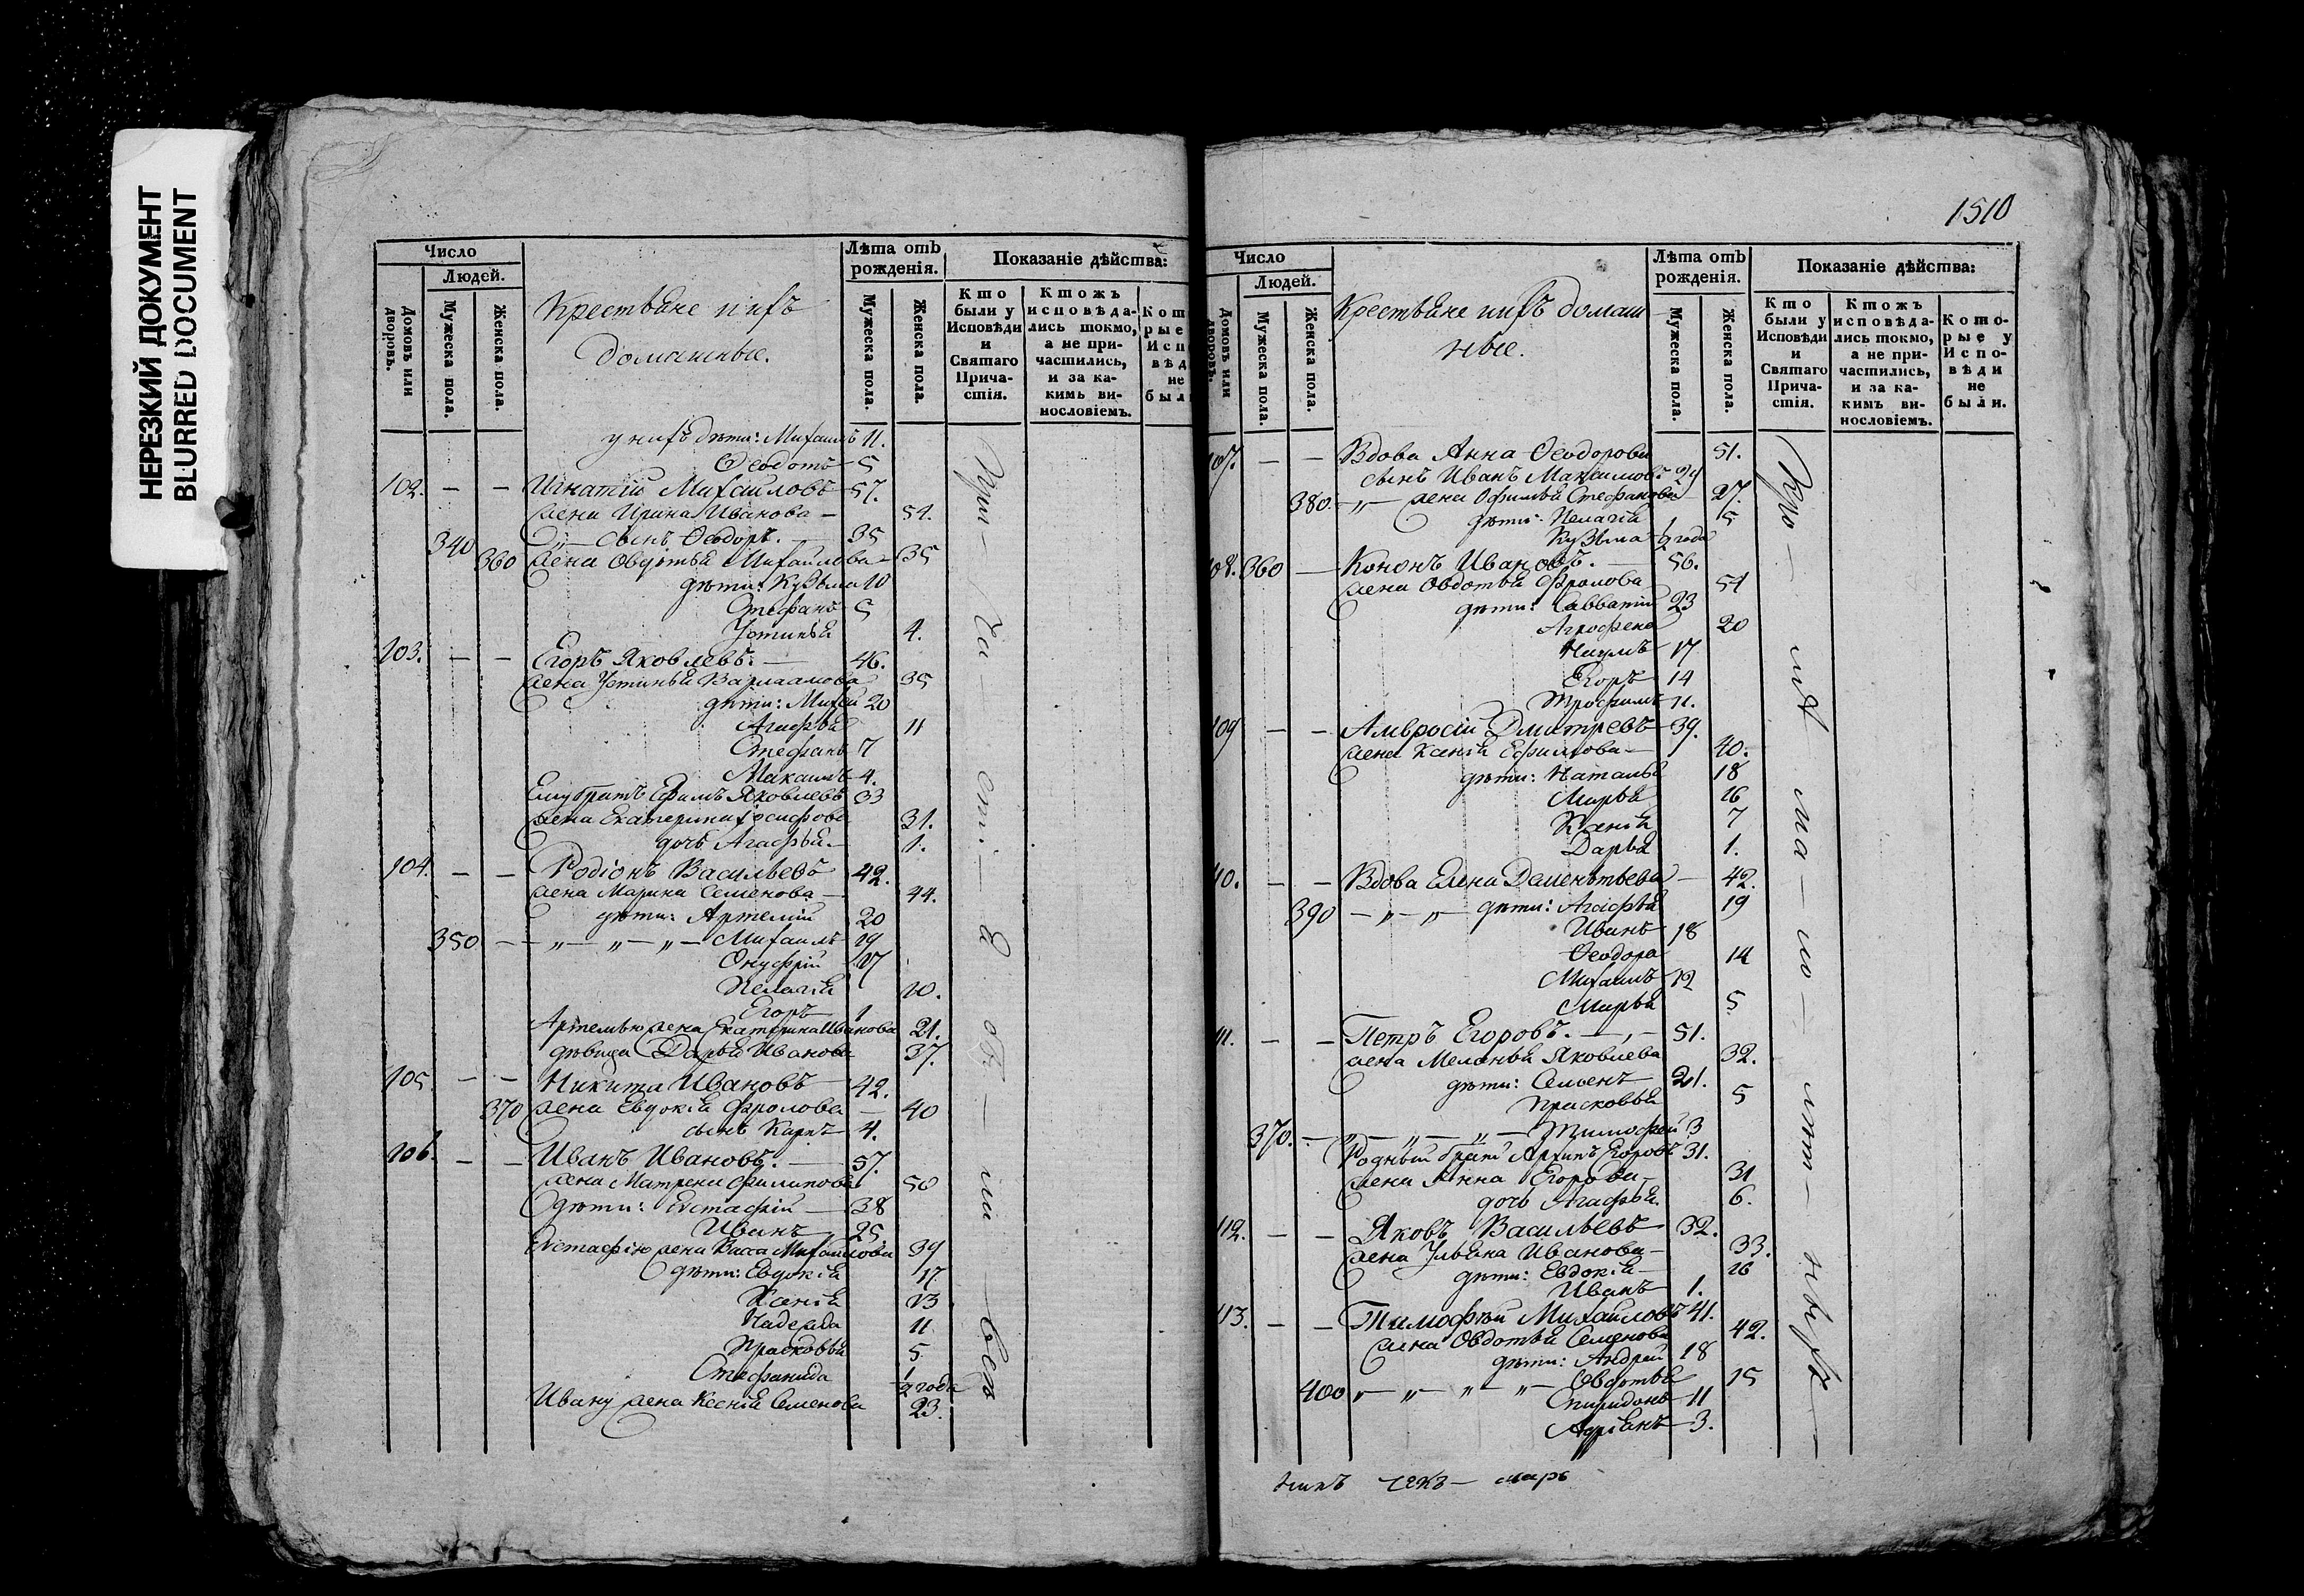 НЕРЕЗКИЙ ДОКУМЕНТ
BLURRED DOCUMENT
Число
Людей.
Домовъ или дворовъ.
Мужеска пола.
Женска пола.
Крестьяне и ихъ
домашные.
Лѣта отъ рожденія.
Мужеска пола.
Женска пола.
Показаніе дѣйства:
Кто были у Исповѣди и Святаго Прича-стія.
Ктожъ исповѣда-лись токмо, а не при-частились, и за ка-кимъ ви-нословіемъ.
Кот рые Исп вѣд не был
у нихъ дѣти: Михаилъ 11.
Ѳеодотъ 5
102. — — Игнатій Михайловъ 57.
жена Ирина Иванова — 51.
340 сынъ Ѳеодоръ. — 35
360 жена Овдотья Михайлова 35
дѣти: Кузьма 10
Стефанъ 5
Устинья 4.
103. — — Егоръ Яковлевъ. — 46.
жена Устинья Варлаамова 35
дѣти: Михей 20
Агафья 11
Стефанъ 7
Макаимъ 4.
Ему братъ Ефимъ Яковлевъ 33
жена Екатерина Іосифова 31.
дочь Агафья. — 1.
104. — — Родіонъ Васильевъ 42.
жена Марина Семенова — 44.
дѣти: Артемій 20
350 — „ — „ — „ — Михаилъ 19
Онуфрій 17
Пелагія 10.
Егоръ 1
Артемью жена Екатерина Иванова 21.
дѣвица Дарья Иванова 37.
105. — — Никита Ивановъ 42.
370 жена Евдокія Фролова — 40
сынъ Карпъ 4.
106. — — Иванъ Ивановъ. — 57.
жена Матрена Филипова 50
дѣти: Евстафій — 38
Иванъ 25
Евстафію жена Васса Михайлова 39
дѣти: Евдокія 17
Ксенія 13
Надежда 11
Прасковья 5
Стефанида 1/2 года
Ивану жена Ксенія Семенова 23.
1510
Число
Людей.
Домовъ или дворовъ.
Мужеска пола.
Женска пола.
Крестьяне и ихъ домаш
ные.
Лѣта отъ рожденія.
Мужеска пола.
Женска пола.
Показаніе дѣйства:
Кто были у Исповѣди и Святаго Прича-стія.
Ктожъ исповѣда-лись токмо, а не при-частились, и за ка-кимъ ви-нословіемъ.
Кото-рые у Испо-вѣди не были.
107. — — Вдова Анна Ѳеодорова 51.
сынъ Иванъ Максимовъ 29
380. „ — жена Офимья Стефанова 27.
дѣти: Пелагія 5
Кузьма 1/2 года
108. 360 — Кононъ Ивановъ. 56.
жена Овдотья Фролова 51
дѣти: Савватій 23
Агрофена 20
Наумъ 17
Егоръ 14
Трофимъ 11.
109 — — Амвросій Дмитревъ 39.
жена Ксенія Ефимова — 40.
дѣти: Наталья 18
Марья 16
Ксенія 7
Дарья 1.
110. — — Вдова Елена Даментьева — 42.
390 — „ — „ — дѣти: Агафья 19
Иванъ 18
Ѳеодора 14
Михаилъ 12
Марья 5
111. — — Петръ Егоровъ. — 51.
жена Меланья Яковлева 32.
дѣти: Семенъ 21.
Прасковья 5
370. — „ — „ — „ — Тимофей 3
Родный братъ Архипъ Егоровъ 31.
жена Анна Егорова 31
дочь Агафья. 6.
112. — — Яковъ Васильевъ 32.
жена Ульяна Иванова — 33.
дѣти: Евдокія 16
Иванъ 1.
113. — — Тимофѣй Михайловъ 41.
жена Овдотья Семенова 42.
дѣти: Андрей 18
400 „ — „ — „ — „ — Овдотья 15
Спиридонъ 11
Адріанъ 3.